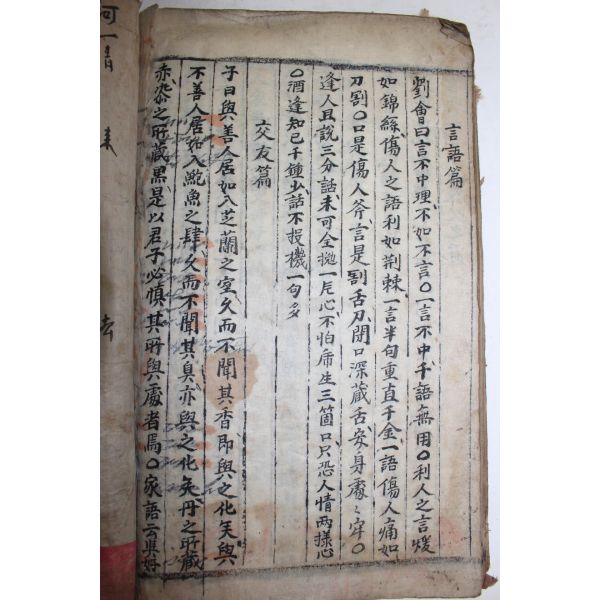 言語篇
劉會曰言不中理不如不言〇一言不中千語無用〇利人之言煖
如錦絲傷人之語利如荆棘一言半句重直千金一語傷人痛如
刀割〇口是傷人斧言是割舌刀閉口深藏舌安身處〻牢〇
逢人且說三分話未可全抛一片心不怕虎生三箇口只恐人情兩樣心
〇酒逢知己千鍾少話不投機一句多
交友篇
子曰與善人居如入芝蘭之室久而不聞其香即與之化矣與
不善人居如入鮑魚之肆久而不聞其臭亦與之化矣丹之所藏
赤漆之所藏黑是以君子必慎其所與處者焉〇家語云與好
何一青